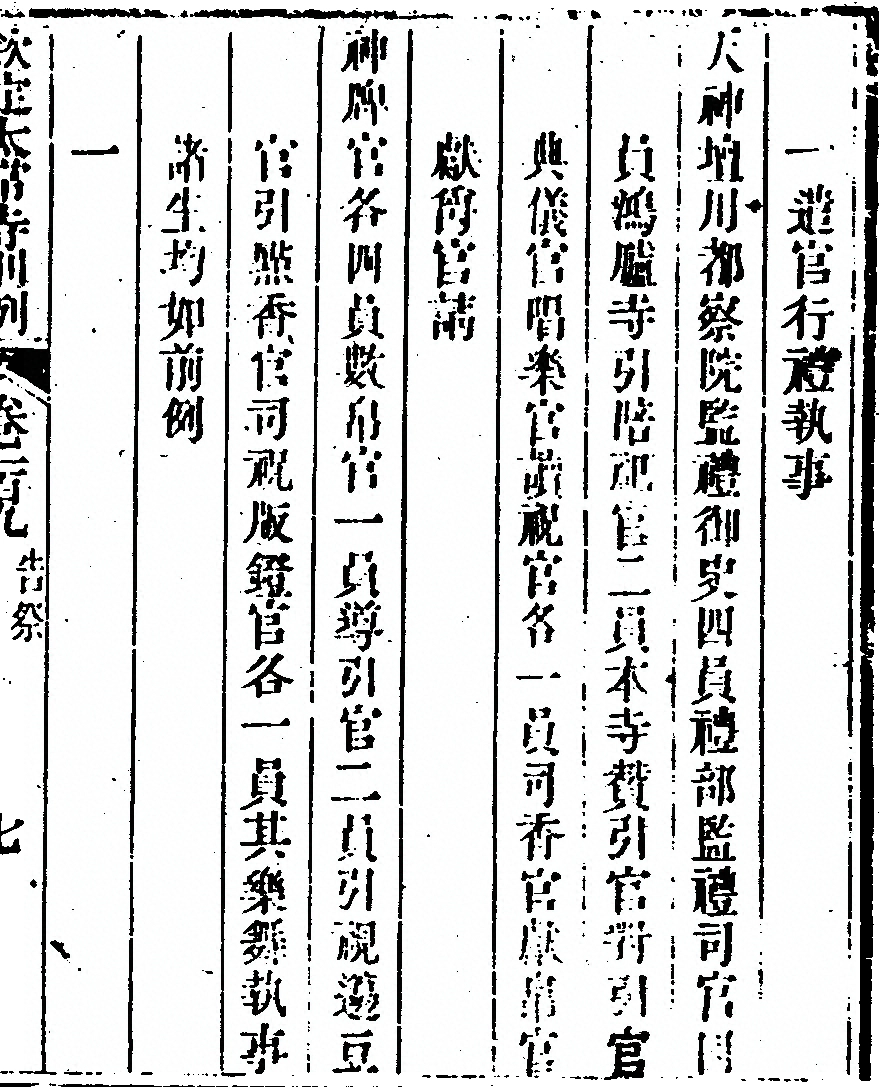 一遣官行禮執事
天神壇用都察院監禮御史四員禮部監禮司官四
員鴻臚寺引陪祀官二員本寺贊引官對引官
典儀官唱樂官讀祝官各一員司香官獻帛官
獻爵官請
神牌官各四員數帛官一員導引官二員引視籩豆
官引點香官司祝版鐙官各一員其樂舞執事
諸生均如前例
一
欽定太常寺則例 卷二百九 告祭 七